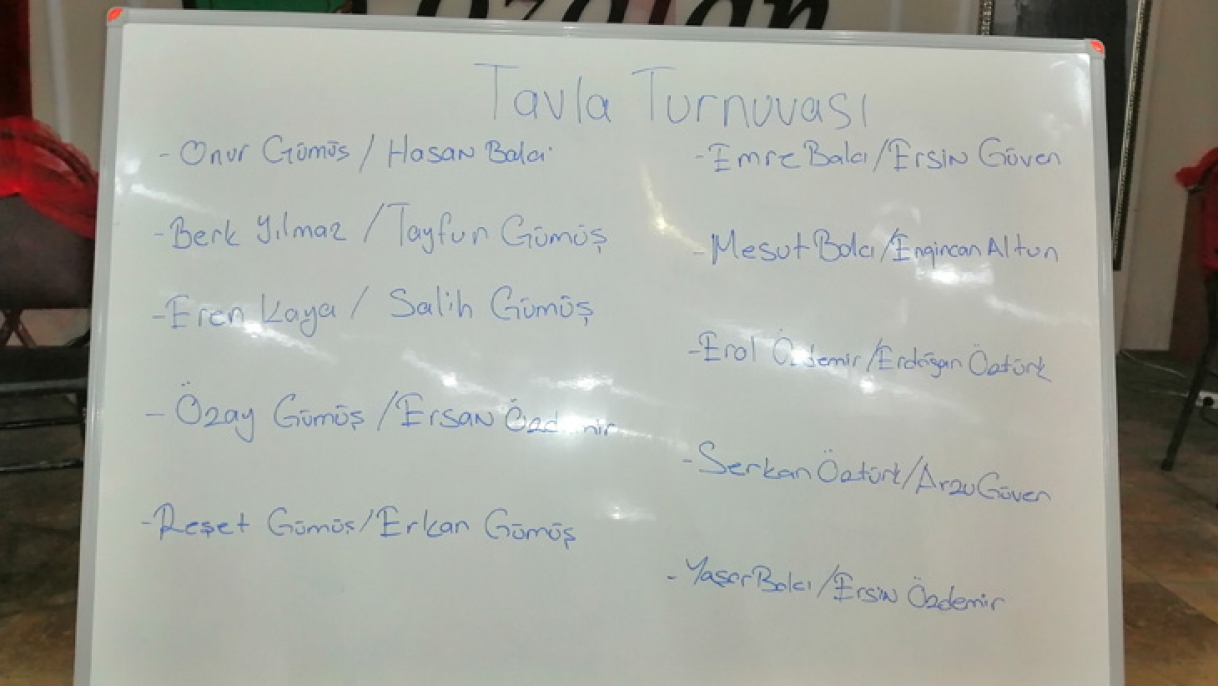 Tavla Turnuvası
- Onur Gümüş / Hasan Balcı
- Berk Yılmaz / Tayfun Gümüş
- Eren Kaya / Salih Gümüş
- Özay Gümüş / Ersan Özdemir
- Reşet Gümüş / Erkan Gümüş
- Emre Balcı / Ersin Güven
- Mesut Balcı / Engincan Altun
- Erol Özdemir / Erdoğan Öztürk
- Serkan Öztürk / Arzu Güven
- Yaşar Balcı / Ersin Özdemir